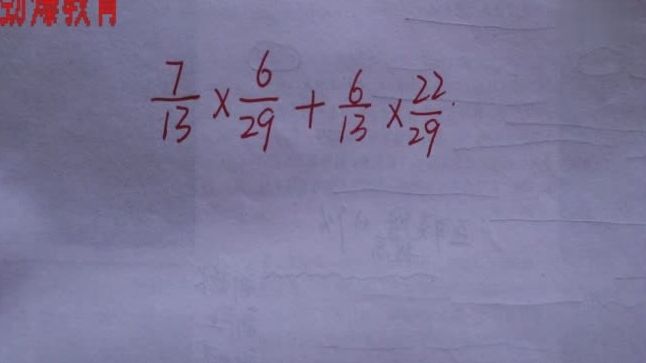 劲爆教育
7/13 × 6/29 + 6/13 × 22/29.